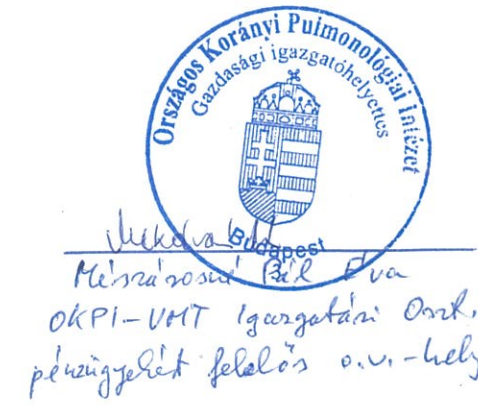 Országos Korányi Pulmonológiai Intézet
Gazdasági igazgatóhelyettes
Budapest
Mészárosné Pál Éva
OKPI-VMT Igazgatási Oszt.
pénzügyekért felelős o.v.-hely